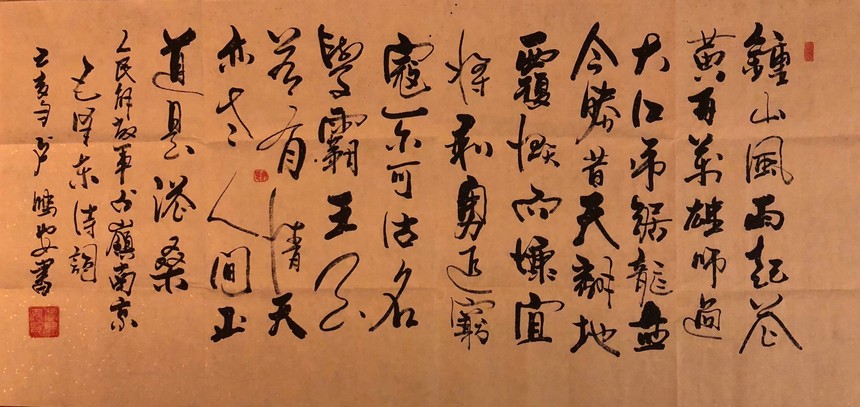 鐘山風雨起蒼
黄百萬雄師過
大江虎踞龍盘
今勝昔天翻地
覆慨而慷宜
将剩勇追窮
寇不可沽名
學霸王天
若有情天
亦老人間正
道是滄桑
人民解放军占嶺南京
毛澤东诗詞
己亥年 鵬 書